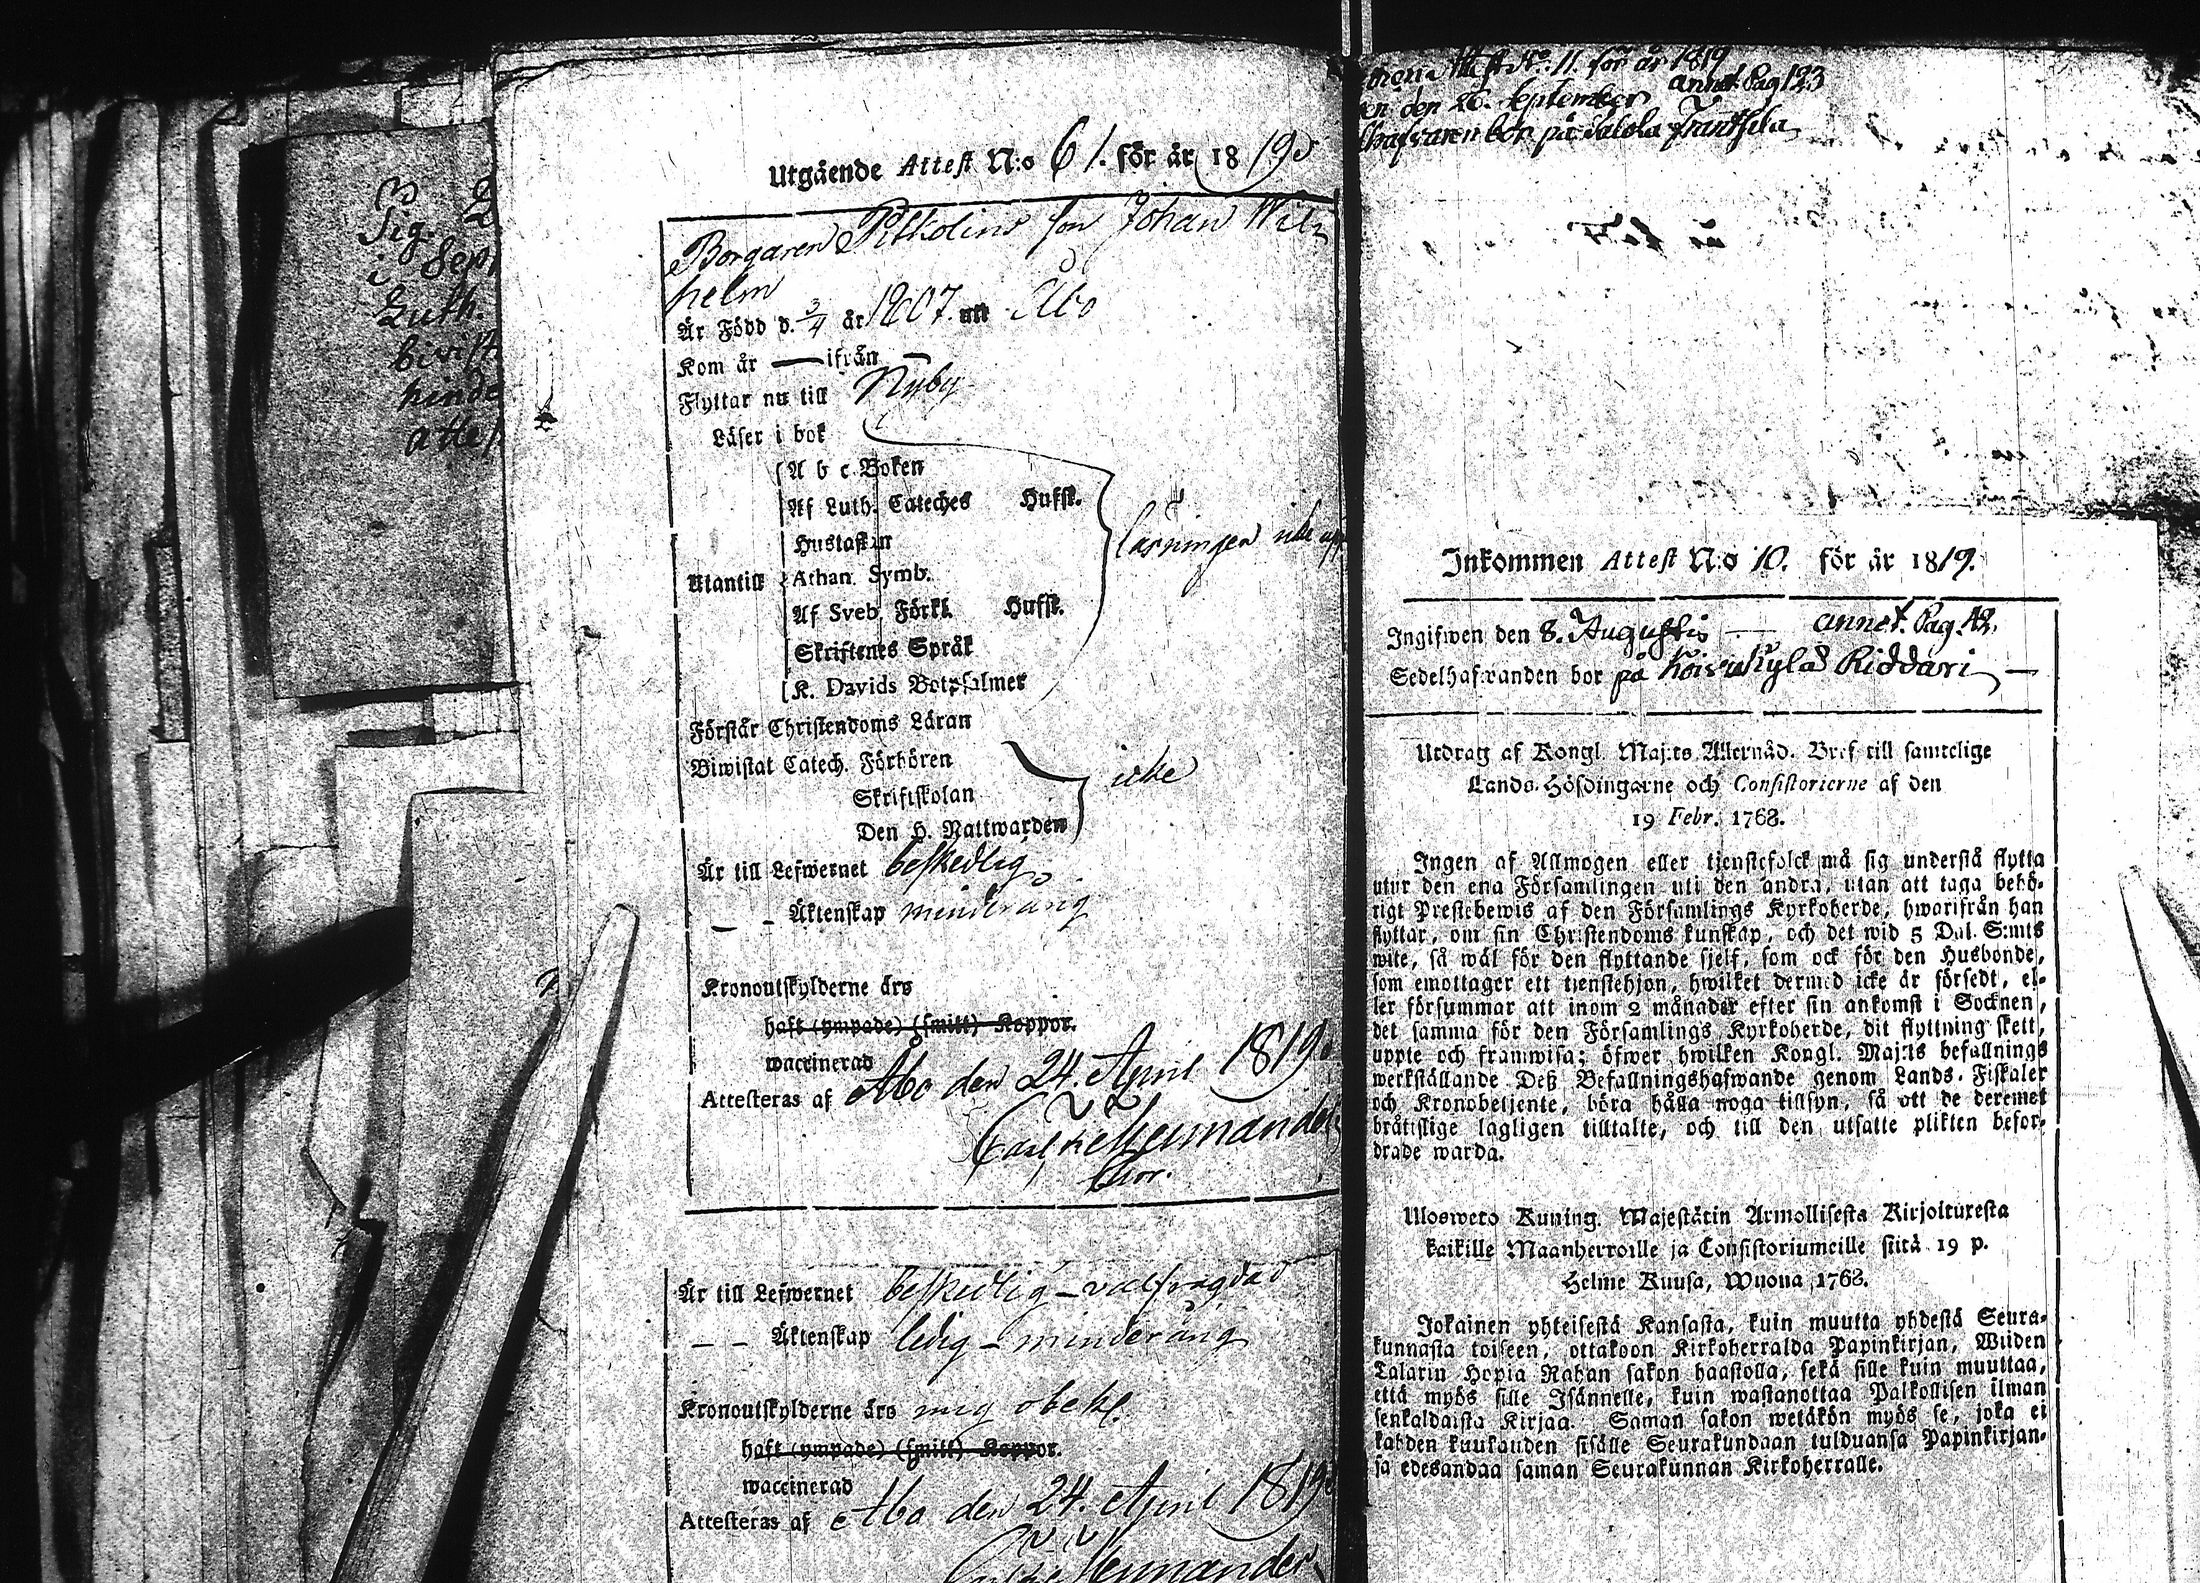 Sig.
i Sept
Luth.
bivist
hinde
attest
Utgående Attest N:o 61. för år 1819
Borgaren Pitkolins son Johan Wil-
helm
Är Född d. 3/4 år 1807. utt Åbo
Kom år — ifrån —
Flyttar nu till Nyby
Läser i bok
A b c Boken
Af Luth. Cateches Hufst.
Hustaflan
Utantill
Athan. Symb.
Af Sveb. Förkl. Hufst.
Skriftenes Språk
K. Davids Botpsalmer
läsningen icke
Förstår Christendoms Läran
Biwistat Catech. Förhören
Skriftskolan
Den H. Nattwarden
icke
Är till Lefwernet beskedlig
— — Äktenskap minderårig
Kronoutskylderne äro
haft (ympade) (smitt) Koppor.
waccinerad
Attesteras af Åbo den 24. April 1819
Är till Lefwernet beskedlig – välfrägdad
— — Äktenskap ledig – minderårig
Kronoutskylderne äro mig obek.
haft (ympade) (smitt) Koppor.
waccinerad
Attesteras af Åbo den 24. April 1819
N:o 11 för år 1819
en den 26. September annot. Pag 123
bor på Salola Frantsila
Inkommen Attest N:o 10. för år 1819.
Ingifwen den 8. Augusti — annot. Pag. 12.
Sedelhafwanden bor på Koiwukylä Riddari —
Utdrag af Kongl. Maj:ts Allernåd. Bref till samtelige
Lands-Höfdingarne och Consistorierne af den
19 Febr. 1768.
Ingen af Allmogen eller tjenstefolck må sig understå flytta
utur den ena Församlingen uti den andra, utan att taga behö-
rigt Prestebewis af den Församlings Kyrkoherde, hwarifrån han
flyttar, om sin Christendoms kunskap, och det wid 5 Dal. S:mts
wite, så wäl för den flyttande sjelf, som ock för den Husbonde,
som emottager ett tjenstehjon, hwilket dermed icke är försedt, el-
ler försummar att inom 2 månader efter sin ankomst i Socknen,
det samma för den Församlings Kyrkoherde, dit flyttning skett,
uppte och framwisa; öfwer hwilken Kongl. Maj:ts befallnings
werkställande Deß Befallningshafwande genom Lands-Fiskaler
och Kronobetjente, böra hålla noga tillsyn, så att de deremot
bråtislige lagligen tilltalte, och till den utsatte plikten befor-
drade warda.
Ulosweto Kuning. Majestätin Armollisesta Kirjoituxesta
kaikille Maanherroille ja Consistoriumeille siitä 19 p.
Helme Kuusa, Wuona 1768.
Jokainen yhteisestä Kansasta, kuin muutta yhdestä Seura-
kunnasta toiseen, ottakoon Kirkoherralda Papinkirjan, Wiiden
Talarin Hopia Rahan sakon haastolla, sekä sille kuin muuttaa,
että myös sille Isännelle, kuin wastanottaa Palkollisen ilman
senkaldaista Kirjaa. Saman sakon wetäkön myös se, joka ei
kahden kuukauden sisälle Seurakundaan tulduansa Papinkirjan-
sa edesandaa saman Seurakunnan Kirkoherralle.